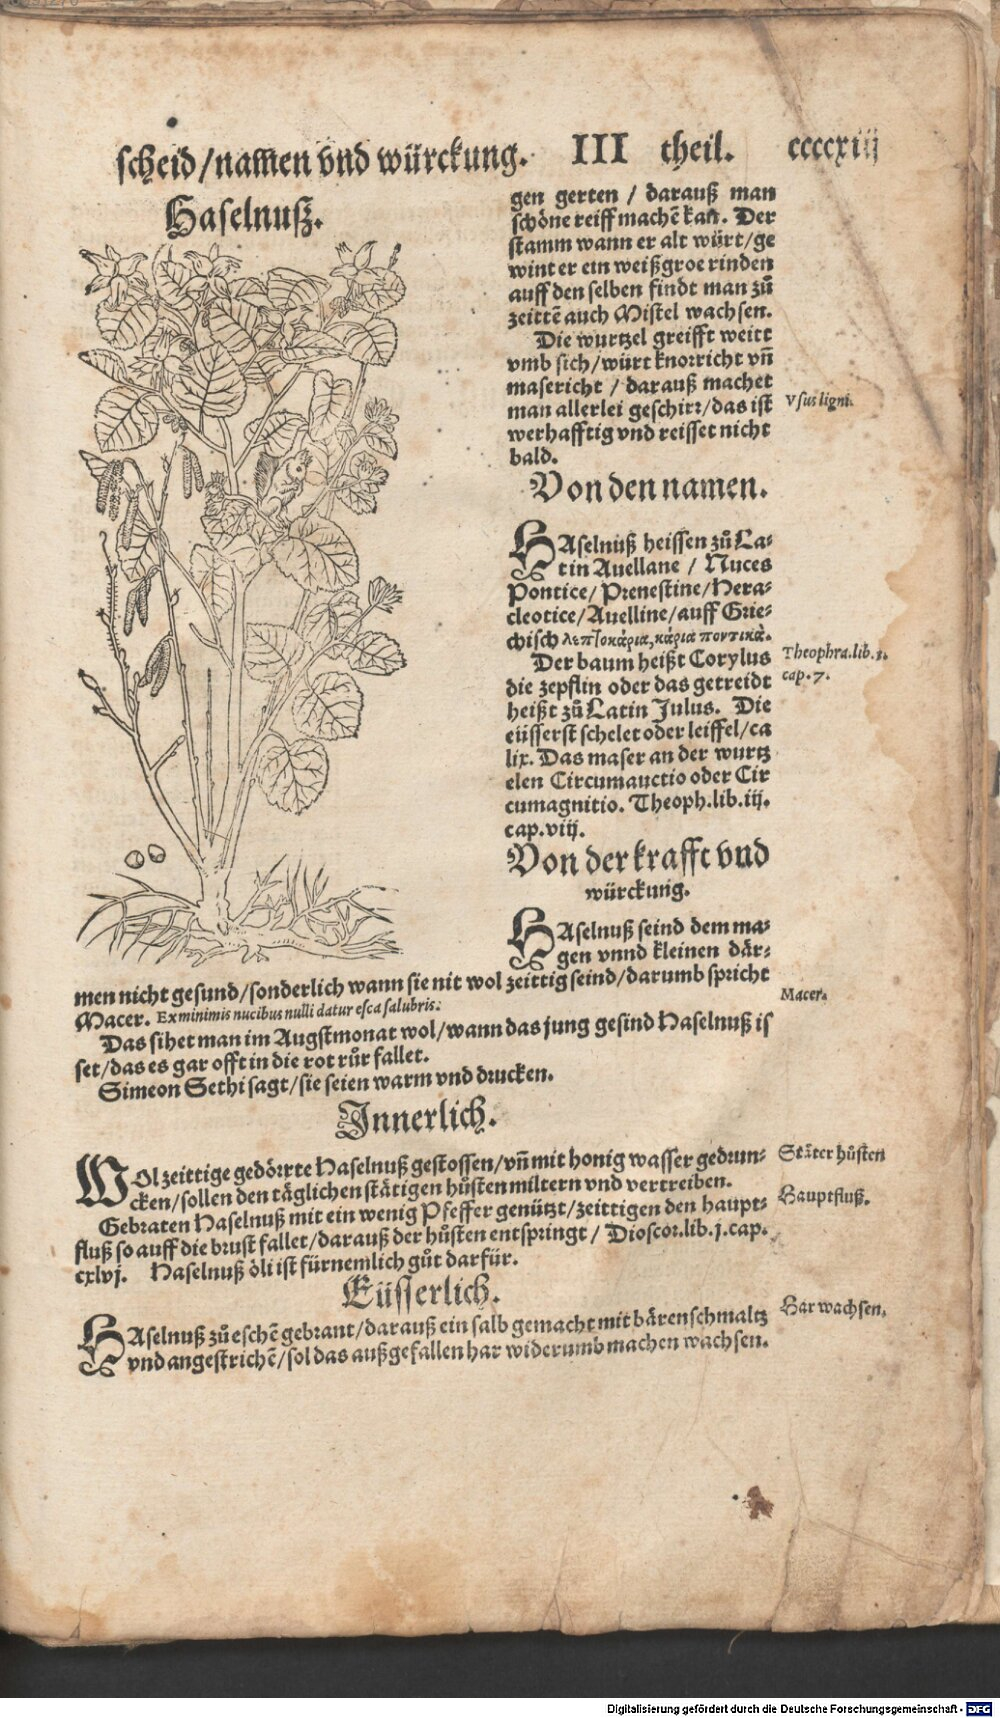 scheid/namen vnd würckung. III theil. ccccxiij
Haselnusz.
gen gerten / darauß man
schöne reiff machẽ kan. Der
stamm wann er alt würt/ge
wint er ein weißgroe rinden
auff den selben findt man zů
zeittẽ auch Mistel wachsen.
Die wurtzel greifft weitt
vmb sich/würt knorricht vñ
masericht / darauß machet
man allerlei geschirr/das ist
werhafftig vnd reisset nicht
bald.
Vsus ligni.
Von den namen.
HAselnuß heissen zů La-
tin Auellane / Nuces
Pontice/ Prenestine/Hera-
cleotice/Auelline/auff Grie-
chisch λεπτοκάρια, κάρια ποντικὰ.
Der baum heißt Corylus
die zepflin oder das getreidt
heißt zů Latin Julus. Die
eüsserst schelet oder leiffel/ca
lix. Das maser an der wurtz
elen Circumauctio oder Cir
cumagnitio. Theoph.lib.iij.
cap.viij.
Theophra.lib.3.
cap.7.
Von der krafft vnd
würckung.
HAselnuß seind dem ma-
gen vnnd kleinen där-
men nicht gesund/sonderlich wann sie nit wol zeittig seind/darumb spricht
Macer. Ex minimis nucibus nulli datur esca salubris.
Macer.
Das sihet man im Augstmonat wol/wann das jung gesind Haselnuß is
set/das es gar offt in die rot růr fallet.
Simeon Sethi sagt/sie seien warm vnd drucken.
Innerlich.
WOl zeittige gedörrte Haselnuß gestossen/vñ mit honig wasser gedrun-
cken/sollen den täglichen stätigen hůsten miltern vnd vertreiben.
Stäter hůsten
Gebraten Haselnuß mit ein wenig Pfeffer genützt/zeittigen den haupt-
fluß so auff die brust fallet/darauß der hůsten entspringt / Dioscor.lib.j.cap.
cxlvj. Haselnuß öli ist fürnemlich gůt darfür.
Hauptfluß.
Eüsserlich.
HAselnuß zů eschẽ gebrant/darauß ein salb gemacht mit bärenschmaltz
vnd angestrichẽ/sol das außgefallen har widerumb machen wachsen.
Har wachsen.
Digitalisierung gefördert durch die Deutsche Forschungsgemeinschaft - DFG